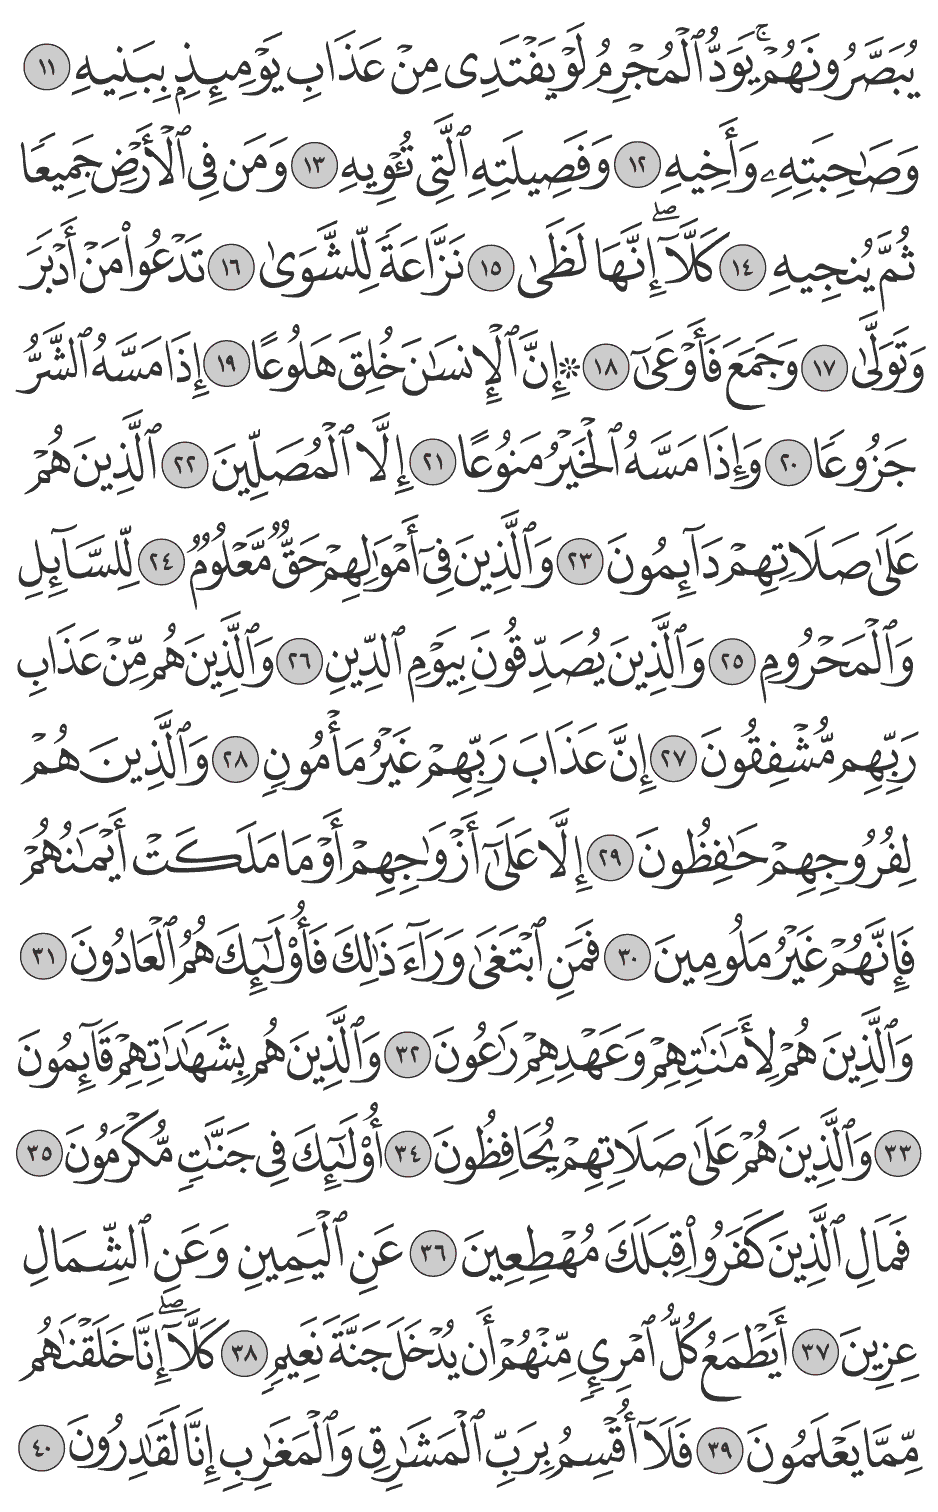 يُبَصَّرُونَهُمْۚ يَوَدُّ ٱلْمُجْرِمُ لَوْ يَفْتَدِى مِنْ عَذَابِ يَوْمِئِذٍۭ بِبَنِيهِ ١١
وَصَـٰحِبَتِهِۦ وَأَخِيهِ ١٢ وَفَصِيلَتِهِ ٱلَّتِى تُـْٔوِيهِ ١٣ وَمَن فِى ٱلْأَرْضِ جَمِيعًا
ثُمَّ يُنجِيهِ ١٤ كَلَّآۖ إِنَّهَا لَظَىٰ ١٥ نَزَّاعَةً لِّلشَّوَىٰ ١٦ تَدْعُوا۟ مَنْ أَدْبَرَ
وَتَوَلَّىٰ ١٧ وَجَمَعَ فَأَوْعَىٰٓ ١٨ ۞ إِنَّ ٱلْإِنسَـٰنَ خُلِقَ هَلُوعًا ١٩ إِذَا مَسَّهُ ٱلشَّرُّ
جَزُوعًا ٢٠ وَإِذَا مَسَّهُ ٱلْخَيْرُ مَنُوعًا ٢١ إِلَّا ٱلْمُصَلِّينَ ٢٢ ٱلَّذِينَ هُمْ
عَلَىٰ صَلَاتِهِمْ دَآئِمُونَ ٢٣ وَٱلَّذِينَ فِىٓ أَمْوَٰلِهِمْ حَقٌّ مَّعْلُومٌ ٢٤ لِّلسَّآئِلِ
وَٱلْمَحْرُومِ ٢٥ وَٱلَّذِينَ يُصَدِّقُونَ بِيَوْمِ ٱلدِّينِ ٢٦ وَٱلَّذِينَ هُم مِّنْ عَذَابِ
رَبِّهِم مُّشْفِقُونَ ٢٧ إِنَّ عَذَابَ رَبِّهِمْ غَيْرُ مَأْمُونٍ ٢٨ وَٱلَّذِينَ هُمْ
لِفُرُوجِهِمْ حَـٰفِظُونَ ٢٩ إِلَّا عَلَىٰٓ أَزْوَٰجِهِمْ أَوْ مَا مَلَكَتْ أَيْمَـٰنُهُمْ
فَإِنَّهُمْ غَيْرُ مَلُومِينَ ٣٠ فَمَنِ ٱبْتَغَىٰ وَرَآءَ ذَٰلِكَ فَأُو۟لَـٰٓئِكَ هُمُ ٱلْعَادُونَ ٣١
وَٱلَّذِينَ هُمْ لِأَمَـٰنَـٰتِهِمْ وَعَهْدِهِمْ رَٰعُونَ ٣٢ وَٱلَّذِينَ هُم بِشَهَـٰدَٰتِهِمْ قَآئِمُونَ
٣٣ وَٱلَّذِينَ هُمْ عَلَىٰ صَلَاتِهِمْ يُحَافِظُونَ ٣٤ أُو۟لَـٰٓئِكَ فِى جَنَّـٰتٍ مُّكْرَمُونَ ٣٥
فَمَالِ ٱلَّذِينَ كَفَرُوا۟ قِبَلَكَ مُهْطِعِينَ ٣٦ عَنِ ٱلْيَمِينِ وَعَنِ ٱلشِّمَالِ
عِزِينَ ٣٧ أَيَطْمَعُ كُلُّ ٱمْرِئٍ مِّنْهُمْ أَن يُدْخَلَ جَنَّةَ نَعِيمٍ ٣٨ كَلَّآۖ إِنَّا خَلَقْنَـٰهُم
مِّمَّا يَعْلَمُونَ ٣٩ فَلَآ أُقْسِمُ بِرَبِّ ٱلْمَشَـٰرِقِ وَٱلْمَغَـٰرِبِ إِنَّا لَقَـٰدِرُونَ ٤٠